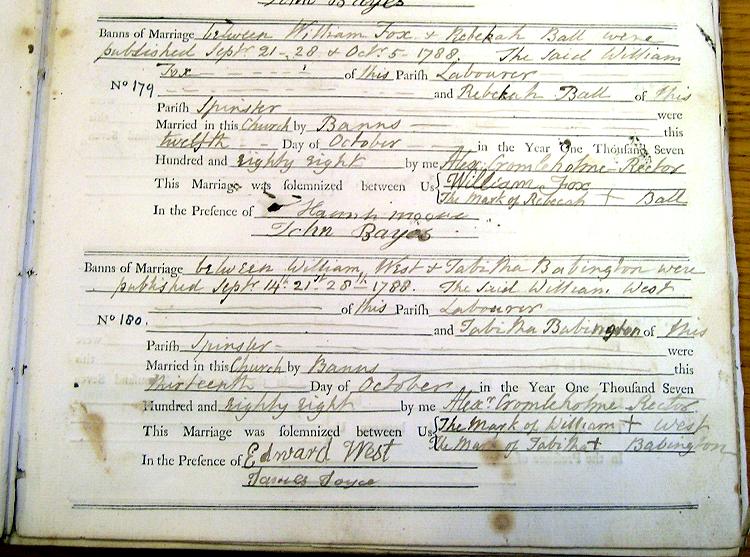 John Bayes
Banns of Marriage between William Fox & Rebekah Ball were
published Septr. 21 - 28 & Octr. 5 - 1788. The said William
Fox of this Parish Labourer
No 179 and Rebekah Ball of this
Parish Spinster were
Married in this Church by Banns this
twelfth Day of October in the Year One Thousand Seven
Hundred and eighty eight by me Alexr. Cromleholme Rector
This Marriage was solemnized between Us { William Fox
The Mark of Rebecah + Ball
In the Presence of Hannah
John Bayes
Banns of Marriage between William West & Tabitha Babington were
published Septr. 14th. 21st. 28th. 1788. The said William West
of this Parish Labourer
No 180. and Tabitha Babington of this
Parish Spinster were
Married in this Church by Banns this
thirteenth Day of October in the Year One Thousand Seven
Hundred and eighty eight by me Alexr. Cromleholme Rector
This Marriage was solemnized between Us { The Mark of William + West
The Mark of Tabitha + Babington
In the Presence of Edward West
James Joyce